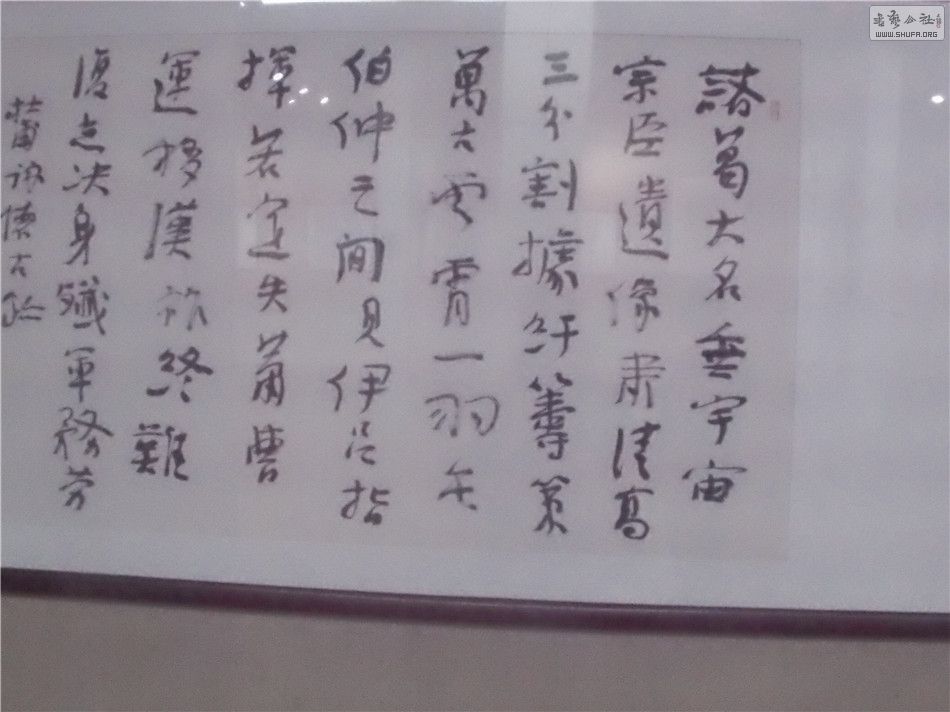 諸葛大名垂宇宙
宗臣遺像肅清高
三分割據紆籌策
萬古雲霄一羽毛
伯仲之間見伊呂指
揮若定失蕭曹
運移漢祚終難
復志决身殲軍務勞
杜甫詠懷古跡
書艺公社
WWW.SHUFA.ORG